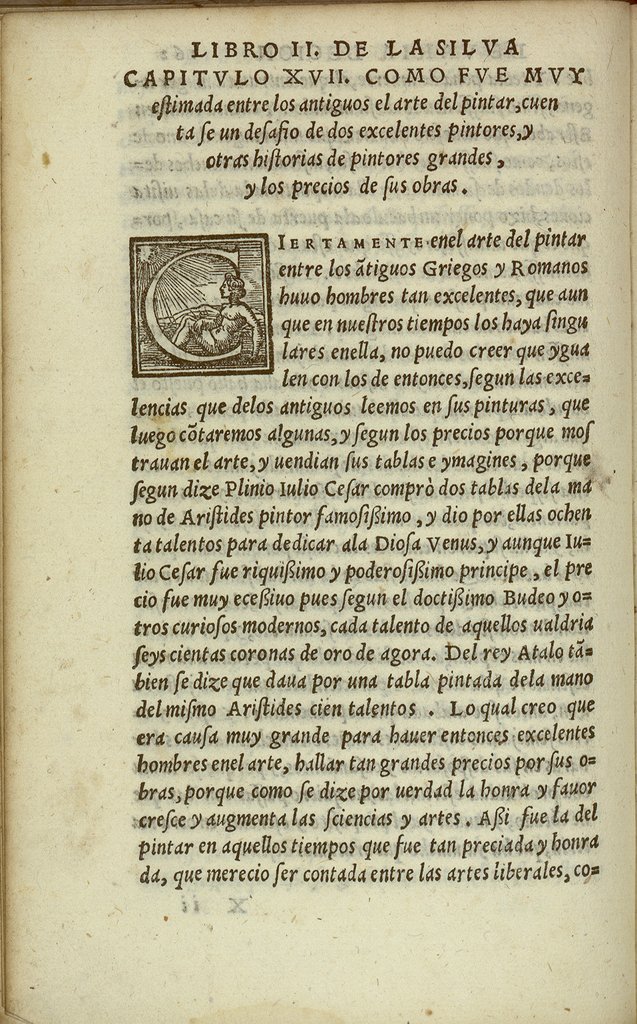 LIBRO II. DE LA SILVA
CAPITVLO XVII. COMO FVE MVY
eſtimada entre los antiguos el arte del pintar, cuen
ta ſe un deſafio de dos excelentes pintores, y
otras hiſtorias de pintores grandes,
y los precios de ſus obras.
CIERTAMENTE enel arte del pintar
entre los ãtiguos Griegos y Romanos
huuo hombres tan excelentes, que aun
que en nueſtros tiempos los haya ſingu
lares enella, no puedo creer que ygua
len con los de entonces, ſegun las exce=
lencias que delos antiguos leemos en ſus pinturas, que
luego cõtaremos algunas, y ſegun los precios porque moſ
trauan el arte, y uendian ſus tablas e ymagines, porque
ſegun dize Plinio Iulio Ceſar comprò dos tablas dela ma
no de Ariſtides pintor famoſißimo, y dio por ellas ochen
ta talentos para dedicar ala Dioſa Venus, y aunque Iu=
lio Ceſar fue riquißimo y poderoſißimo principe, el pre
cio fue muy eceßiuo pues ſegun el doctißimo Budeo y o=
tros curioſos modernos, cada talento de aquellos ualdria
ſeys cientas coronas de oro de agora. Del rey Atalo tã=
bien ſe dize que daua por una tabla pintada dela mano
del miſmo Ariſtides cien talentos. Lo qual creo que
era cauſa muy grande para hauer entonces excelentes
hombres enel arte, hallar tan grandes precios por ſus o=
bras, porque como ſe dize por uerdad la honra y fauor
creſce y augmenta las ſciencias y artes. Aßi fue la del
pintar en aquellos tiempos que fue tan preciada y honra
da, que merecio ſer contada entre las artes liberales, co=